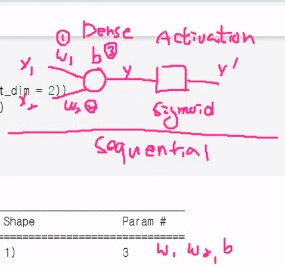 ① Dense Activation
x₁ w₁ b③ y y'
t_dim = 2))
)
x₂ w₂② Sigmoid
Sequential
Shape Param #
1) 3 w₁ w₂, b